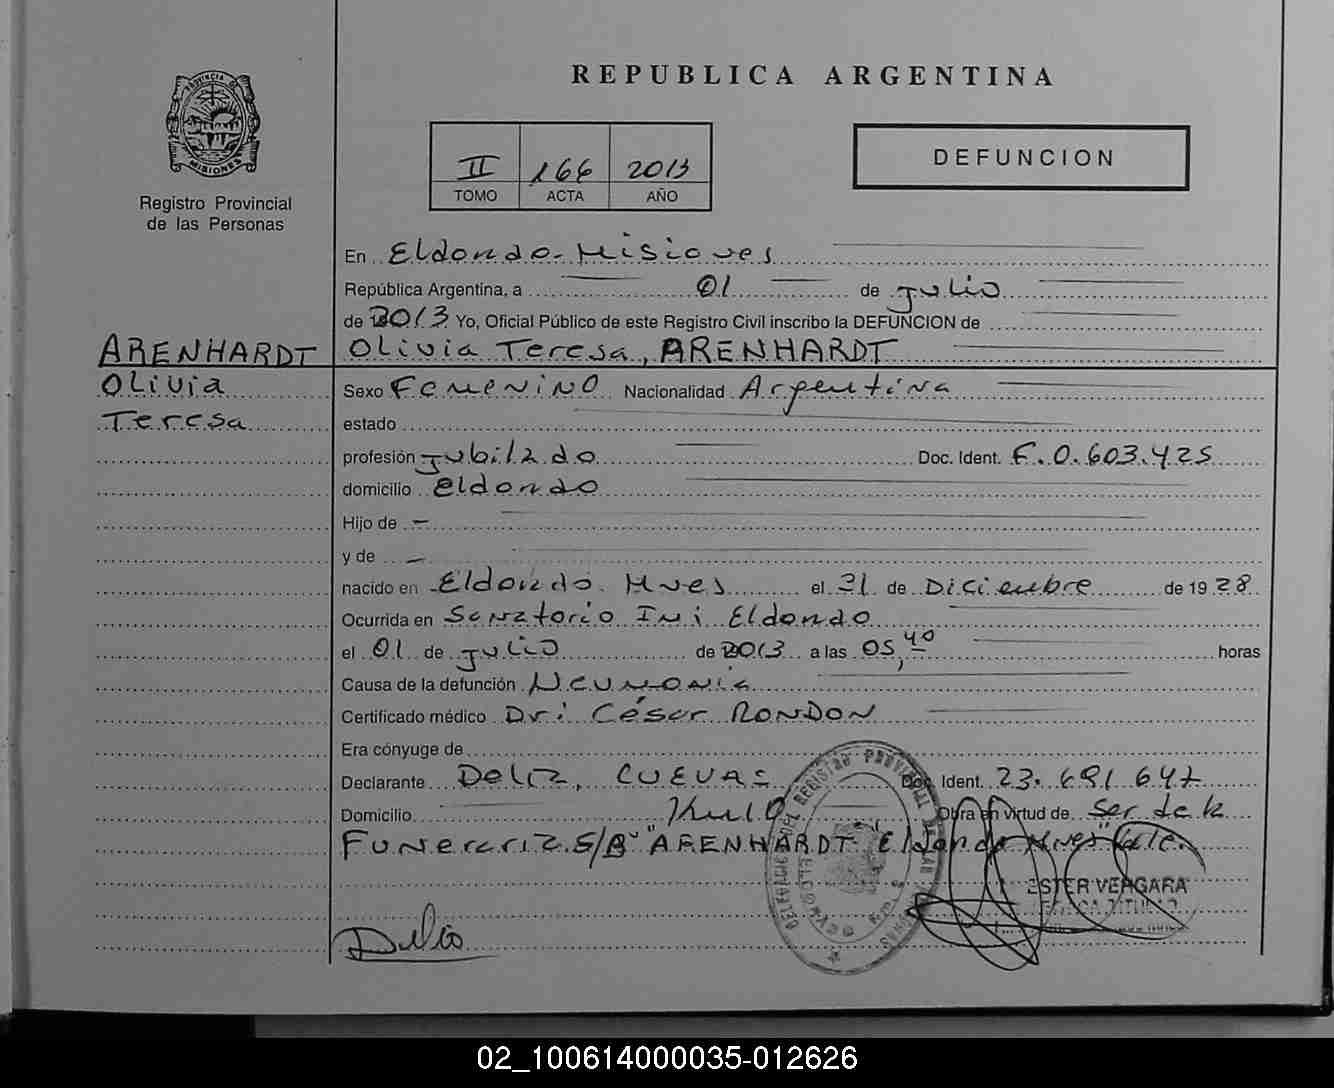 REPUBLICA ARGENTINA
PROVINCIA DE MISIONES
Registro Provincial
de las Personas
II 166 2013
TOMO ACTA AÑO
DEFUNCION
En Eldorado - Misiones
República Argentina, a 01 de julio
de 2013 Yo, Oficial Público de este Registro Civil inscribo la DEFUNCION de
ARENHARDT Olivia Teresa, ARENHARDT
Olivia
Teresa
Sexo Femenino Nacionalidad Argentina
estado
profesión jubilado Doc. Ident. F. 0.603.425
domicilio eldorado
Hijo de —
y de —
nacido en Eldorado. Mnes el 31 de Diciembre de 1928
Ocurrida en Sanatorio Eldorado
el 01 de julio de 2013 a las 05,40 horas
Causa de la defunción Neumonía
Certificado médico Dr: César RONDON
Era cónyuge de
Declarante CUEVAS Doc. Ident. 23.691.647
Domicilio Obra en virtud de Ser de la
Funeraria S/B "ARENHARDT" Eldorado Mnes
ESTER VERGARA
02_100614000035-012626